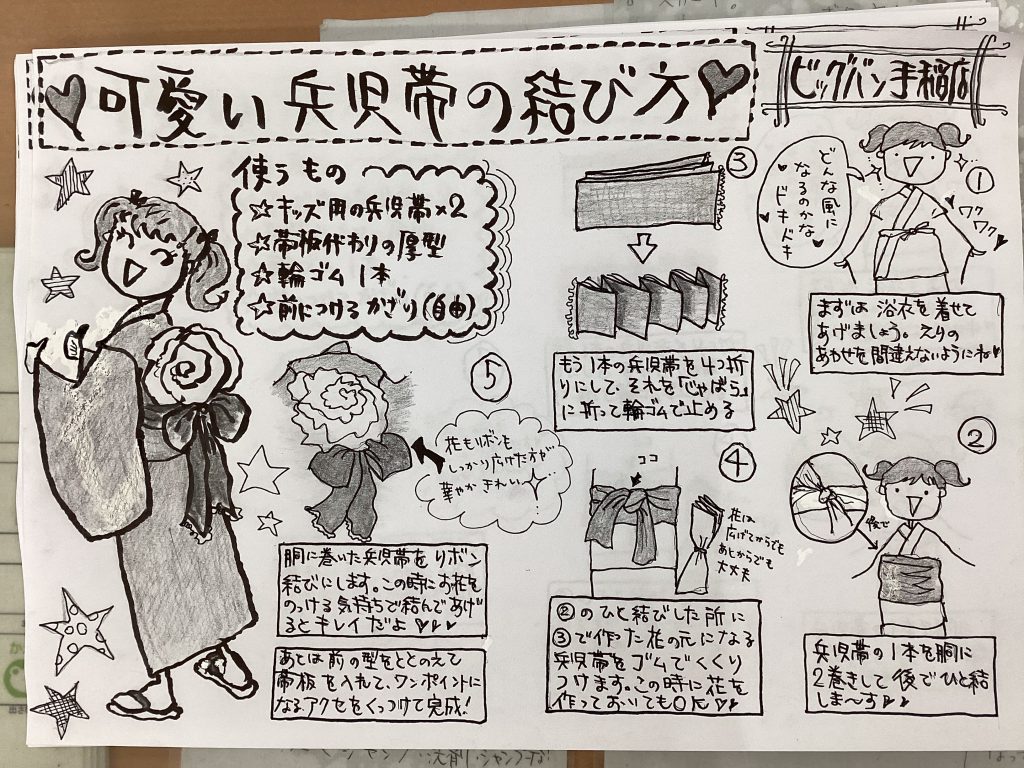 可愛い兵児帯の結び方
ビッグバン手稲店
使うもの
☆キッズ用の兵児帯×2
☆帯板代わりの厚型
☆輪ゴム1本
☆前につけるかざり(自由)
①
どんな風に
なるのかな
ドキドキ
ワク
ワク
まずは浴衣を着せて
あげましょう。えりの
あわせを間違えないようにね
②
後で
兵児帯の1本を胴に
2巻きして後でひと結
しま〜す
③
もう1本の兵児帯を4つ折
りにして、それを「じゃばら」
に折って輪ゴムで止める
④
ココ
花は
広げてからでも
あとからでも
大丈夫
②のひと結びした所に
③で作った花の元になる
兵児帯をゴムでくくり
つけます。この時に花を
作っておいても〇K
⑤
花もリボンも
しっかり広げた方が
華やかきれい
胴に巻いた兵児帯をリボン
結びにします。この時にお花を
のっける気持ちで結んであげ
るとキレイだよ
あとは前の型をととのえて
帯板を入れて、ワンポイントに
なるアクセをくっつけて完成!